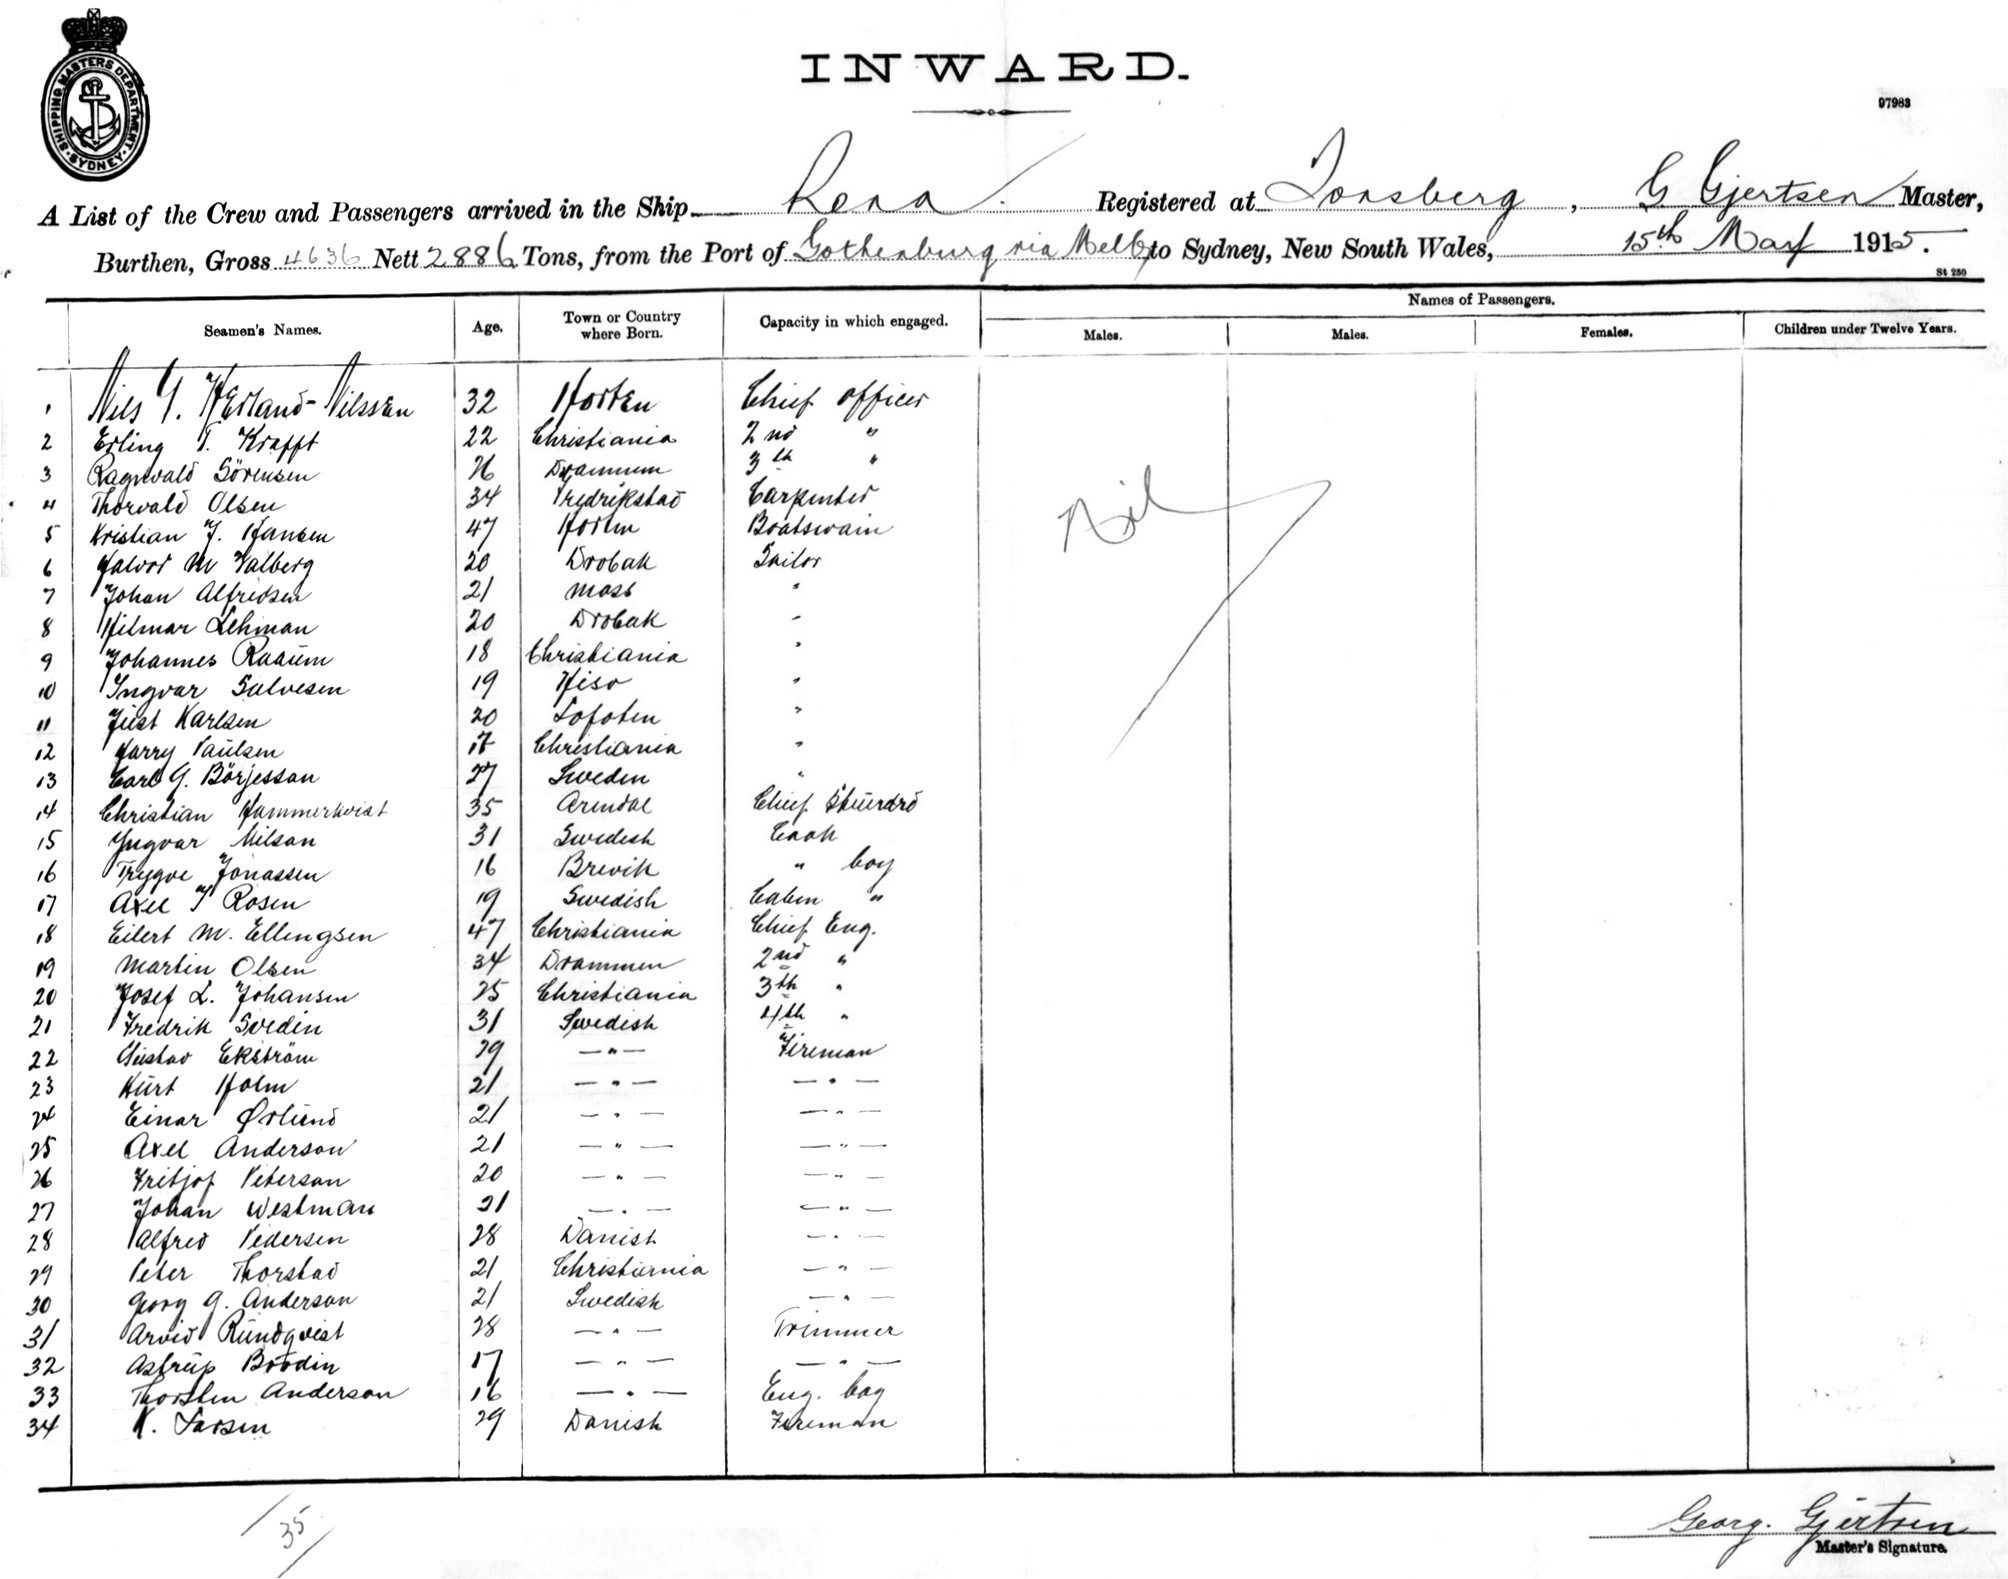 SHIPPING MASTERS DEPARTMENT · SYDNEY ·
INWARD.
97983
A List of the Crew and Passengers arrived in the Ship Rena. Registered at Tonsberg, G Gjertsen Master,
Burthen, Gross 4636 Nett 2886 Tons, from the Port of Gothenburg via Melb to Sydney, New South Wales, 15th May 1915.
St 250
Names of Passengers.
Seamen's Names. Age. Town or Country where Born. Capacity in which engaged. Males. Males. Females. Children under Twelve Years.
1 Nils Herland-Nilssen 32 Horten Chief officer
2 Erling T. Krafft 22 Christiania 2nd "
3 Ragnvald Sörensen 26 Drammen 3th "
4 Thorvald Olsen 34 Fredrikstad Carpenter
5 Kristian J. Hansen 47 Horten Boatswain
6 Halvor M Valberg 20 Drobak Sailor
7 Johan Alfredsen 21 Moss "
8 Hilmar Lehman 20 Drobak "
9 Johannes Raaum 18 Christiania "
10 Ingvar Salvesen 19 Hiso "
11 Just Karlsen 20 Lofoten "
12 Harry Paulsen 17 Christiania "
13 Carl G. Börjesson 27 Sweden "
14 Christian Hammerkvist 35 Arendal Chief
15 Yngvar Nilson 31 Swedish Cook
16 Trygve Jonassen 16 Brevik " boy
17 Axel J Rosen 19 Swedish Cabin "
18 Eilert M. Ellingsen 47 Christiania Chief Eng.
19 Martin Olsen 34 Drammen 2nd "
20 Josef L. Johansen 25 Christiania 3th "
21 Fredrik Svedin 31 Swedish 4th "
22 Gustav Ekström 29 — " — Fireman
23 Kurt Holm 21 — " — — " —
24 Einar Ørlund 21 — " — — " —
25 Axel Anderson 21 — " — — " —
26 Fritjof Peterson 20 — " — — " —
27 Johan Westman 21 — " — — " —
28 Alfred Pedersen 28 Danish — " —
29 Peter Thorstad 21 Christiania — " —
30 Georg G. Anderson 21 Swedish — " —
31 Arvid Rundqvist 28 — " — Trimmer
32 Astrup Bodin 17 — " — — " —
33 Thorsten Anderson 16 — " — Eng. boy
34 K. Larsen 29 Danish Fireman
Nil
35
Georg. Gjertsen
Master's Signature.